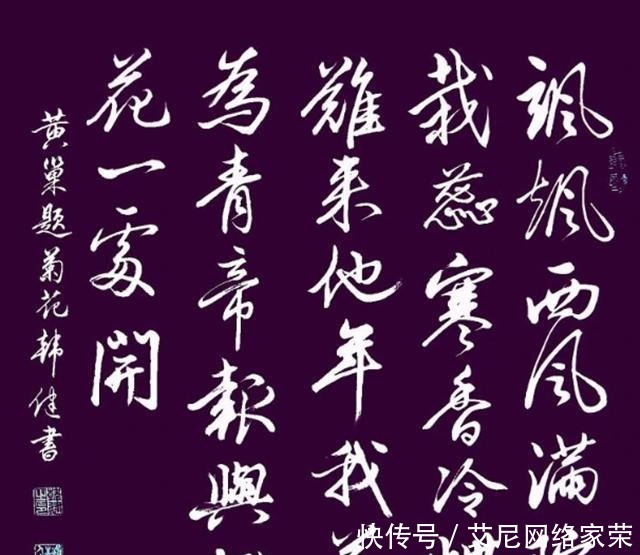 颯颯西风满
栽蕊寒香冷
難来他年我
為青帝報與
花一處開
黄巢题菊花韩健書
快传号 / 艾尼网络家荣